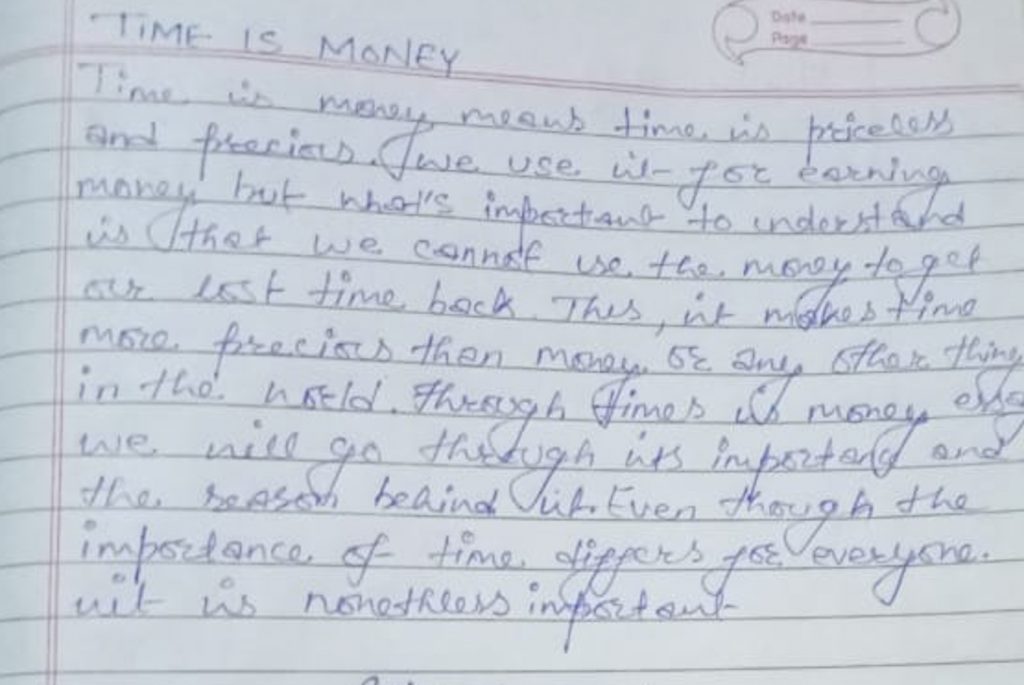 Date
Page
TIME IS MONEY
Time is money means time is priceless
and precious. we use it for earning
money but what's important to understand
is that we cannot use the money to get
our lost time back. This, it makes time
more precious then money or any other thing
in the world. through times is money
we will go through its important and
the reason behind it. Even though the
importance of time differs for everyone.
it is nonethless important